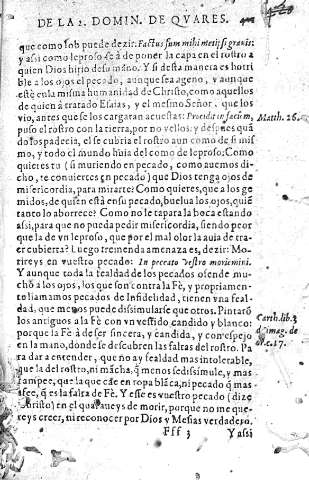 DE LA 2. DOMIN. DE QVARES.
que como Iob puede dezir: Factus sum mihi metipsi gravis:
y assi como leproso se à de poner la capa en el rostro a
quien Dios hirio de su mano. Y si desta manera es horri
ble a los ojos el pecado, aunque sea ageno, y aunque
estè en la misma humanidad de Christo, como aquellos
de quien à tratado Esaias, y el mesmo Señor, que los
vio, antes que se los cargaran acuestas: Procidit in faciem,
Matth. 26.
puso el rostro con la tierra, por no vellos: y despues quã
do los padecia, el se cubria el rostro aun como de si mis
mo, y todo el mundo huia del como de leproso: Como
quieres tu (si muriendo en pecado, como auemos di-
cho, te conuiertes en pecado) que Dios tenga ojos de
misericordia, para mirarte? Como quieres, que a los ge
midos, de quien està en su pecado, buelua los ojos, quiē
tanto lo aborrece? Como no le tapara la boca estando
assi, para que no pueda pedir misericordia, siendo peor
que la de vn leproso, que por el mal olor la auia de tra-
er cubierta? Luego tremenda amenaza es, dezir: Mo-
rireys en vuestro pecado: In peccato vestro moriemini.
Y aunque toda la fealdad de los pecados ofende mu-
chô a los ojos, los que son contra la Fè, y propriamen-
te llamamos pecados de Infidelidad, tienen vna feal-
dad, que menos puede dissimularse que otros. Pintarō
los antiguos a la Fè con vn vestido candido y blanco:
Carth. lib. 3
porque la Fè à de ser sincera, y candida, y con espejo
d' imag. de
en la mano, donde se descubren las faltas del rostro. Pa
17.
ra dar a entender, que no ay fealdad mas intolerable,
que la del rostro, ni mācha, q̃ menos se dissimule, y mas
campee, que la que cae en ropa blāca, ni pecado q̃ mas
afee, q̃ es la falta de Fè. Y esse es vuestro pecado (dize
Christo) en el qual aueys de morir, porque no me que-
reys creer, ni reconocer por Dios y Mesias verdadero.
Fff 3 Y assi